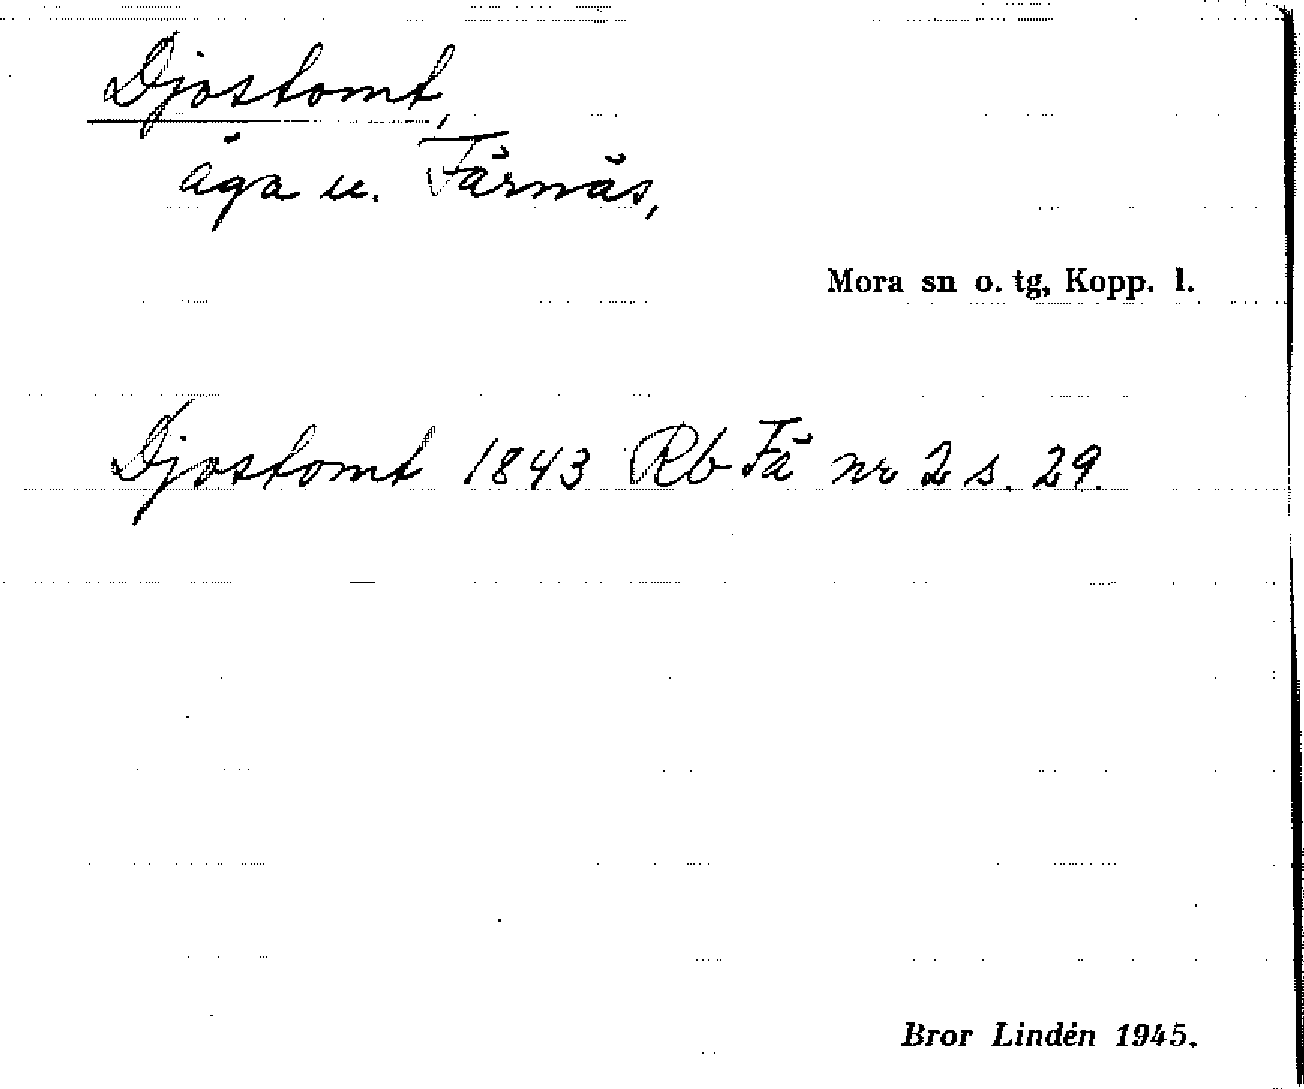 Djostomt,
äga u. Färnäs,
Mora sn o. tg, Kopp. l.
Djostomt 1843 Rb Fä nr 2 s. 29.
Bror Lindén 1945.